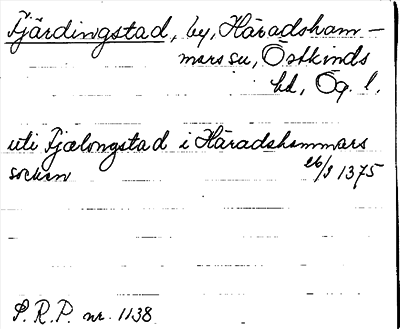 Fjärdingstad, by, Häradsham-
mars su, Östkinds
hd, Ög. l.
uti Fjælongstad i Häradshammars
socken 26/8 1375
S.R.P. nr. 1138